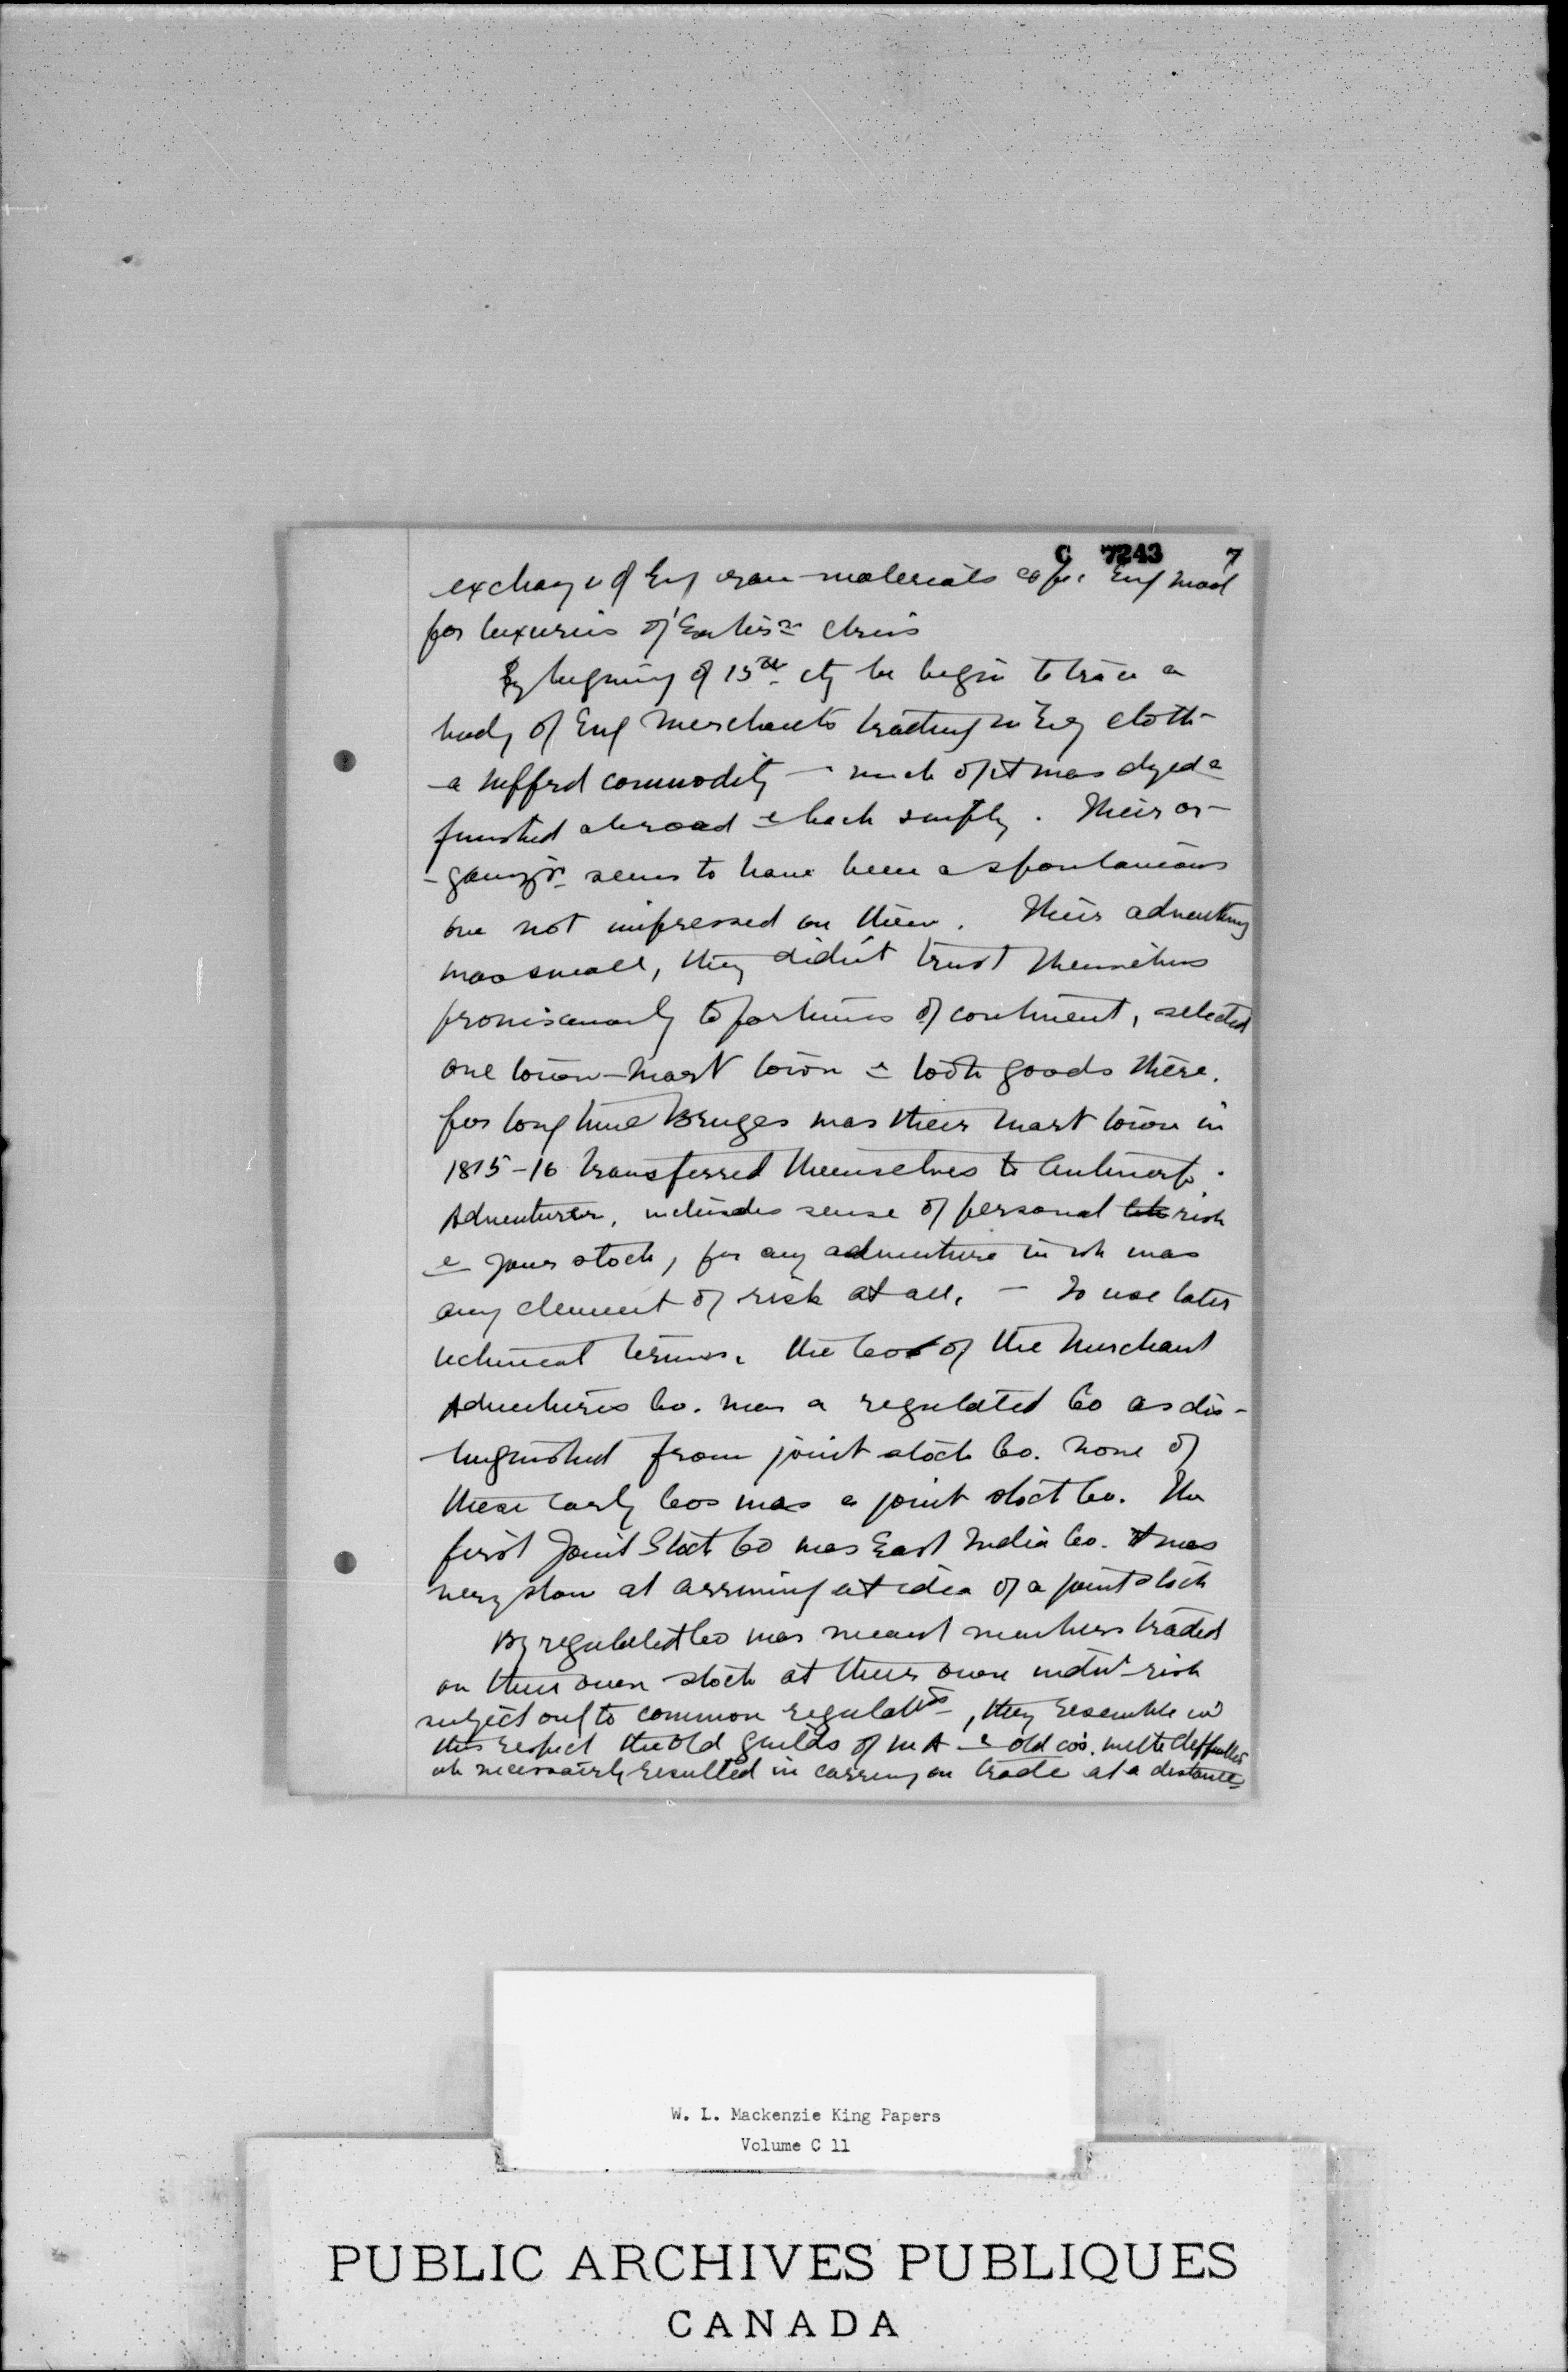 C 7243 7
exchange of Eng raw materials esp. Eng wool
for luxuries of
By begning of 15th cty we begin to trace a
body of Eng merchants trading in Eng cloth
a commodity – much of it was dyed &
finished abroad & back simply. Their or-
-ganiz'n seems to have been a spontaneous
one not impressed on them. Their adventuring
was small, they didn't trust themselves
promiscuously to fortunes of continent, selected
one town – mart town & took goods there.
for long time Bruges was their mart town in
1815-16 transferred themselves to Antwerp.
Adventurer, includes sense of personal risk
& stock, for any adventure in wh was
any element of risk at all. – To use later
technical terms, the Co of the Merchant
Adventurers Co. was a regulated Co as dis-
-tinguished from joint stock Co. None of
these early Cos was a joint stock Co. The
first Joint Stock Co was East India Co. It was
very slow at arriving at idea of a joint stock
By regulated Co was meant members traded
on their own stock at their own indiv risk
subject only to common regulat'ns, they resemble in
this respect the old guilds of M A & old co's. with difficulties
wh necessarily resulted in carrying on trade at a distance
W. L. Mackenzie King Papers
Volume C 11
PUBLIC ARCHIVES PUBLIQUES
CANADA